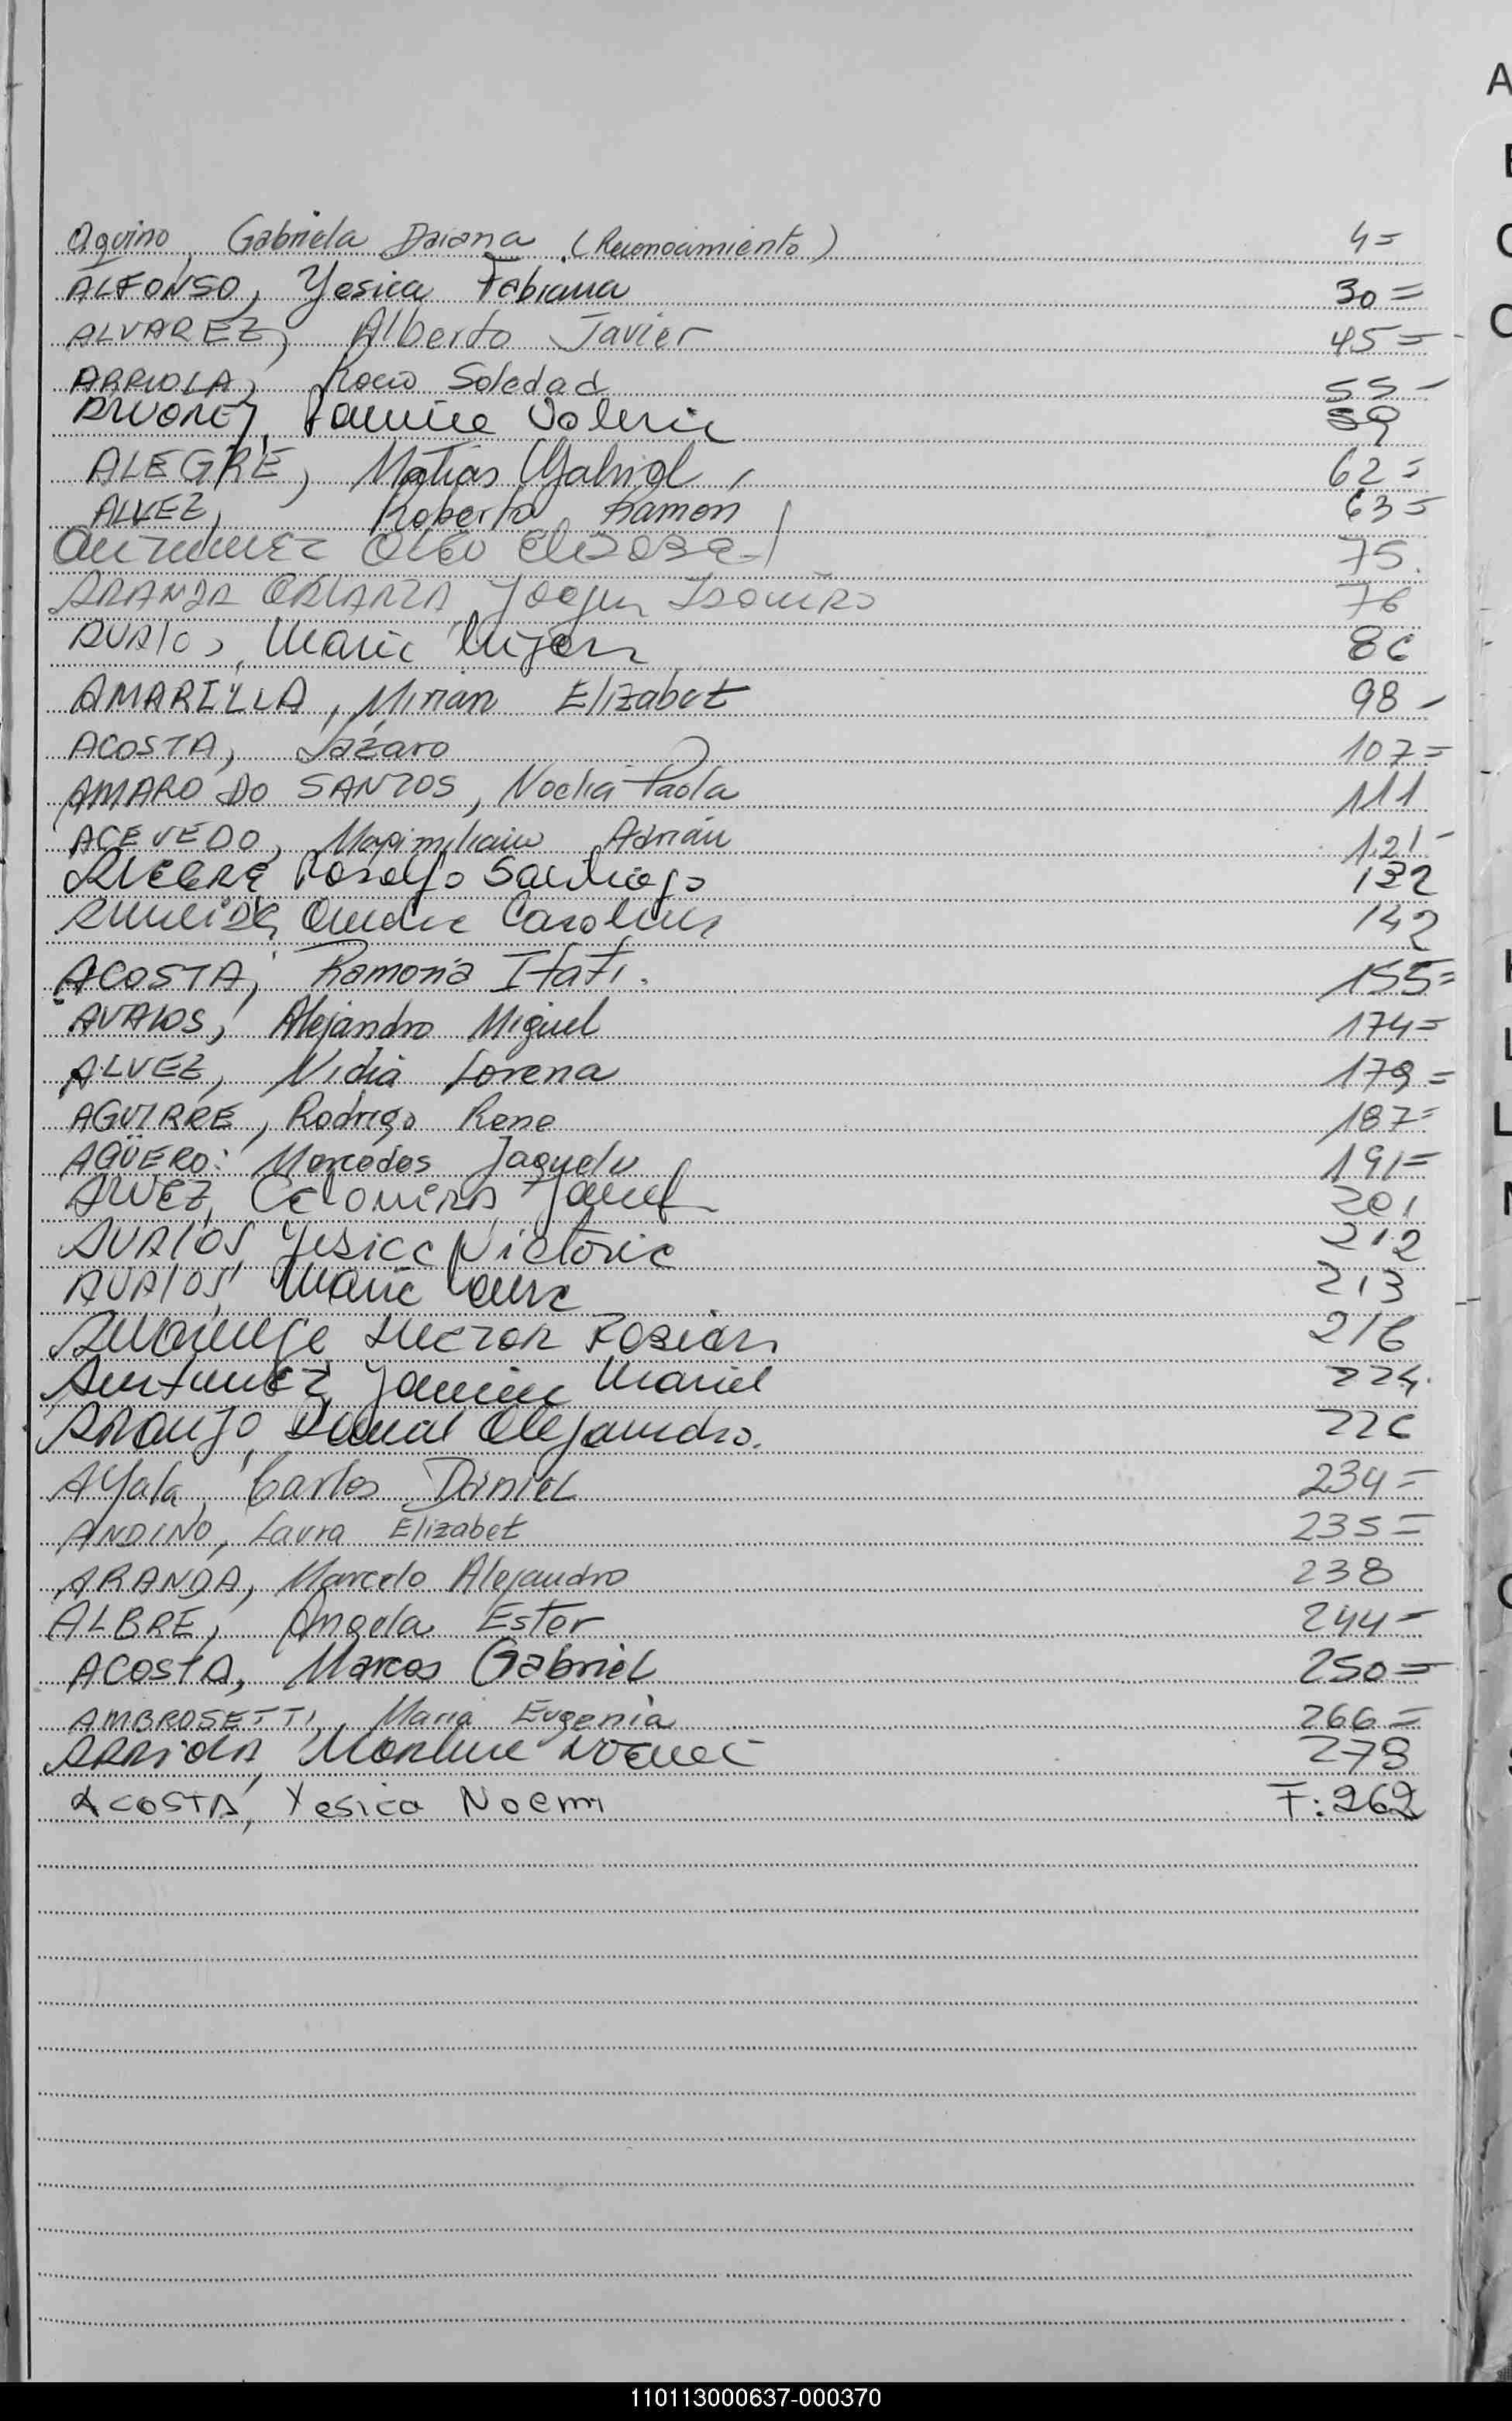 Aquino, Gabriela Daiana (Reconocimiento) 4=
ALFONSO, Yesica Fabiana 30=
ALVAREZ, Alberto Javier 45=
ARRIOLA, Rocio Soledad 55-
Valeria 59
ALEGRE, Matías Gabriel 62=
ALVEZ, Roberto Ramón 63=
75.
ARANDA Joaquin 76
AVALOS, Maria Lujan 86
AMARILLA, Mirian Elizabet 98-
ACOSTA, Lázaro 107=
AMARO DO SANTOS, Noelia Paola 111
ACEVEDO, Maximiliano Adrián 121-
ALEGRE, Rodolfo Santiago 132
Carolina 142
ACOSTA, Ramona Itatí. 155=
AVALOS, Alejandro Miguel 174=
ALVEZ, Nidia Lorena 179=
AGUIRRE, Rodrigo Rene 187=
AGÜERO: Mercedes Jaquelu 191=
ALVEZ, Janet 201
AVALOS, Yesica Victoria 212
AVALOS, Maria Laura 213
Hector Fabian 216
Antunez, Mariel 224.
Araujo, Alejandro. 226
AYala, Carlos DaniEL 234=
ANDINO, Laura Elizabet 235=
ARANDA, Marcelo Alejandro 238
ALBRE, Angela Ester 244=
ACOSTA, Marcos Gabriel 250=
AMBROSETTI, Maria Eugenia 266=
ARRIOLA, 278
ACOSTA, Yesica Noemi F: 262
A
C
L
110113000637-000370